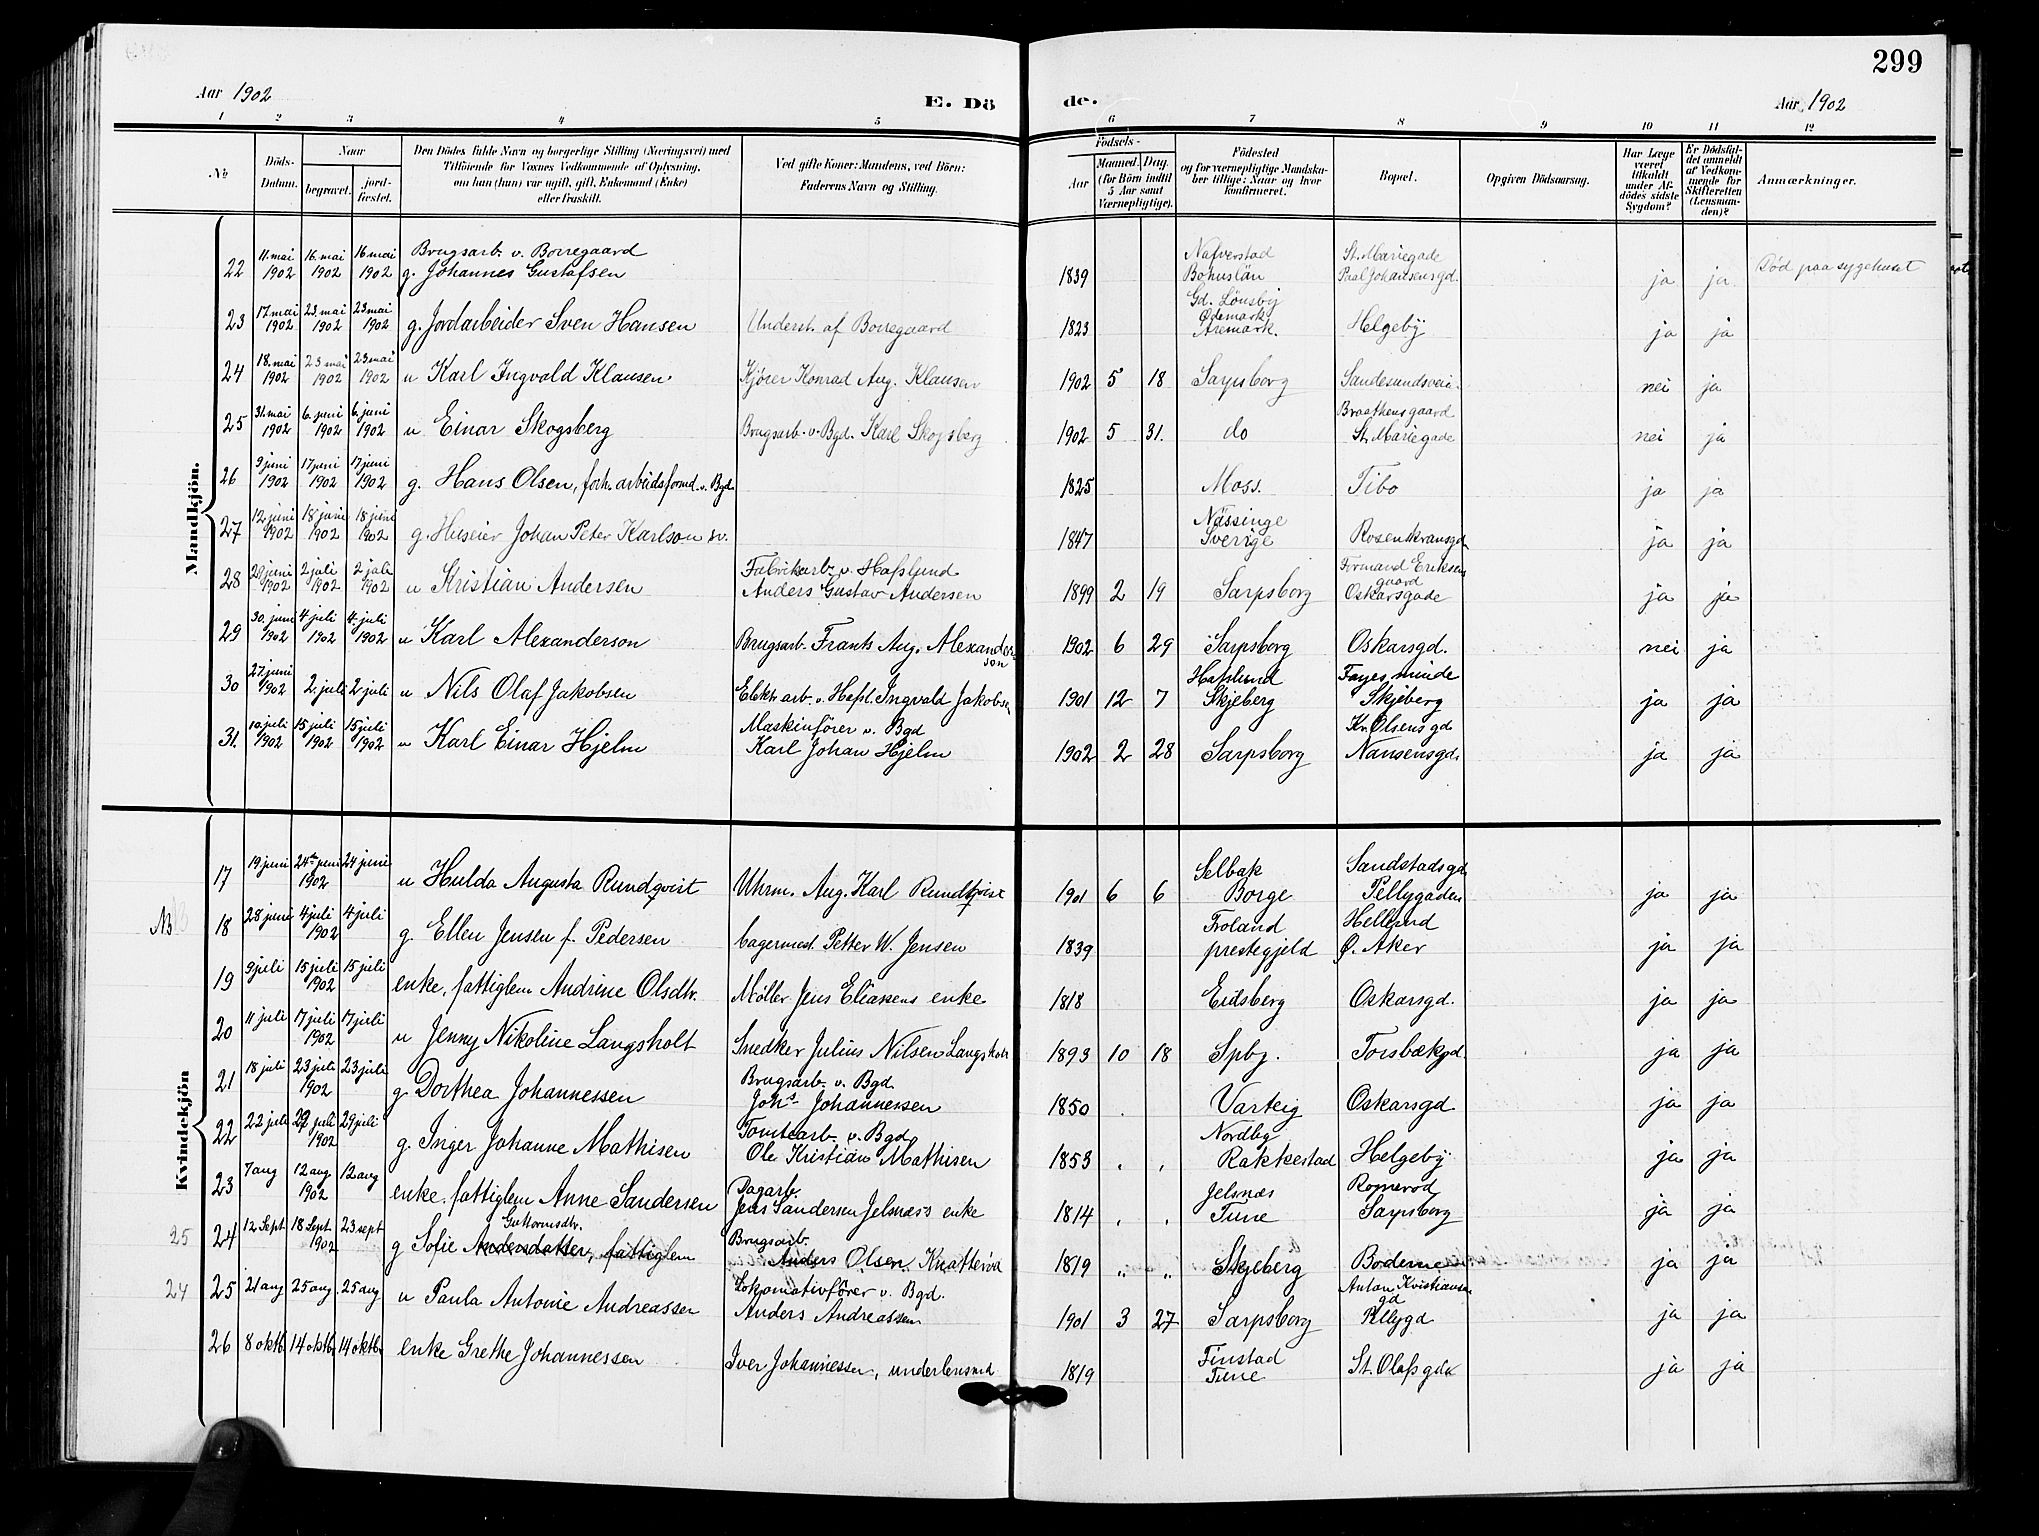 299
Aar 1902 E. Dö de. Aar 1902
1 2 3 4 5 6 7 8 9 10 11 12
No Döds-Datum. Naar begravet. jordfæstet. Den Dödes fulde Navn og borgerlige Stilling (Næringsvei) med Tilföiende for Voxnes Vedkommende af Oplysning, om han (hun) var ugift, gift, Enkemand (Enke) eller fraskilt. Ved gifte Koner: Mandens, ved Börn: Faderens Navn og Stilling. Födsels- Aar Maaned. Dag. (for Börn indtil 5 Aar samt Værnepligtige). Födested og for værnepligtige Mandskaber tillige: Naar og hvor konfirmeret. Bopæl. Opgiven Dödsaarsag. Har Læge været tilkaldt under Afdödes sidste Sygdom? Er Dödsfaldet anmeldt af Vedkommende for Skifteretten (Lensmanden)? Anmærkninger.
Mandkjön.
22 11. mai 1902 16. mai 1902 16 mai 1902 Brugsarb. v. Borregaard g. Johannes Gustafsen 1839 Nafverstad Bohuslän St. Mariegade Paal Johansensgd. ja ja Död paa sygehuset
23 17 mai 1902 23. mai 1902 23 mai 1902 g. Jordarbeider Sven Hansen Underst. af Borregaard 1823 Gd. Lönsby Ödemark Aremark. Helgeby ja ja
24 18. mai 1902 23 mai 1902 23 mai 1902 u Karl Ingvald Klausen. Kjörer Konrad Aug. Klausen 1902 5 18 Sarpsborg Sandesundsveien. nei ja
25 31. mai 1902 6. juni 1902 6. juni 1902 u Einar Skogsberg Brugsarb. v. Bgd. Karl Skogsberg 1902 5 31. do Braathens gaard St. Mariegade nei ja
26 9 juni 1902 17 juni 1902 17 juni 1902 g. Hans Olsen, forh. arbeidsformd. v. Bgd. 1825 Moss. Tibo ja ja
27 12. juni 1902 18 juni 1902 18 juni 1902 g. Huseier Johan Peter Karlson sv. 1847 Nässinge Sverige Rosenkransgd. ja ja
28 29 juni 1902 2 juli 1902 2 juli 1902 u Kristian Andersen Fabrikarb. v. Hafslund Anders Gustav Andersen 1899 2 19 Sarpsborg Formand Eriksens gaard Oskarsgade ja ja
29 30. juni 1902 4 juli 1902 4. juli 1902 u Karl Alexanderson Brugsarb. Frants Aug. Alexanderson 1902 6 29 Sarpsborg Oskarsgd. nei ja
30 27. juni 1902 2. juli 2 juli u Nils Olaf Jakobsen Elektr. arb. v. Hafsl. Ingvald Jakobsen 1901 12 7 Hafslund Skjeberg Fayes minde Skjeberg ja ja
31. 10. juli 1902 15 juli 1902 15 juli 1902 u Karl Einar Hjelm Maskinförer v. Bgd Karl Johan Hjelm 1902 2 28 Sarpsborg Kr. Olsens gd Nansensgd. ja ja
Kvindekjön
17 19 juni 24de juni 1902 24 juni u Hulda Augusta Rundqvist Uhrm. Aug. Karl Rundqvist 1901 6 6 Selbak Borge Sandstadsgd. Pellygaden ja ja
NB 18 28 juni 4 juli 1902 4 juli g. Ellen Jensen f. Pedersen Lagermest. Petter W. Jensen 1839 Froland prestegjeld Hellelund Ø. Aker ja ja
19 9 juli 15 juli 1902 15 juli enke, fattiglem Andrine Olsdtr. Møller Jens Eliasens enke 1818 Eidsberg Oskarsgd. ja ja
20 11 juli 17 juli 1902 17 juli u Jenny Nikoline Langsholt Snedker Julius Nilsen Langsholt 1893 10 18 Spbg. Torsbækgd ja ja
21 18 juli 23 juli 1902 23 juli g Dorthea Johannessen Brugsarb. v. Bgd. Johs. Johannessen 1850 Varteig Oskarsgd ja ja
22 22 juli 29 juli 1902 29 juli g. Inger Johanne Mathisen Tomtearb. v. Bgd. Ole Kristian Mathisen 1853 Nordby Rakkestad Helgeby ja ja
23 7 aug 12 aug 1902 12 aug enke. fattiglem Anne Sandersen Dagarb. Jens Sandersen Jelsnæs's enke 1814 Jelsnæs Tune Romeröd Sarpsborg ja ja
25 24 12 Sept 18 Sept 1902 23 sept g Sofie Guttormsdtr. Andersdatter, fattiglem Brugsarb. Anders Olsen Knatteröd 1819 „ „ Skjeberg Boderne ja ja
24 25 21 aug 25 aug. 25 aug u Paula Antonie Andreassen Lokomotivförer v. Bgd. Anders Andreassen 1901 3 27 Sarpsborg Anton Kristiansens gd Pellygd ja ja
26 8 oktb. 14 oktb. 14 oktb. enke Grethe Johannessen Iver Johannessen, underlensmd 1819 Finstad Tune St. Olafs gd. ja ja